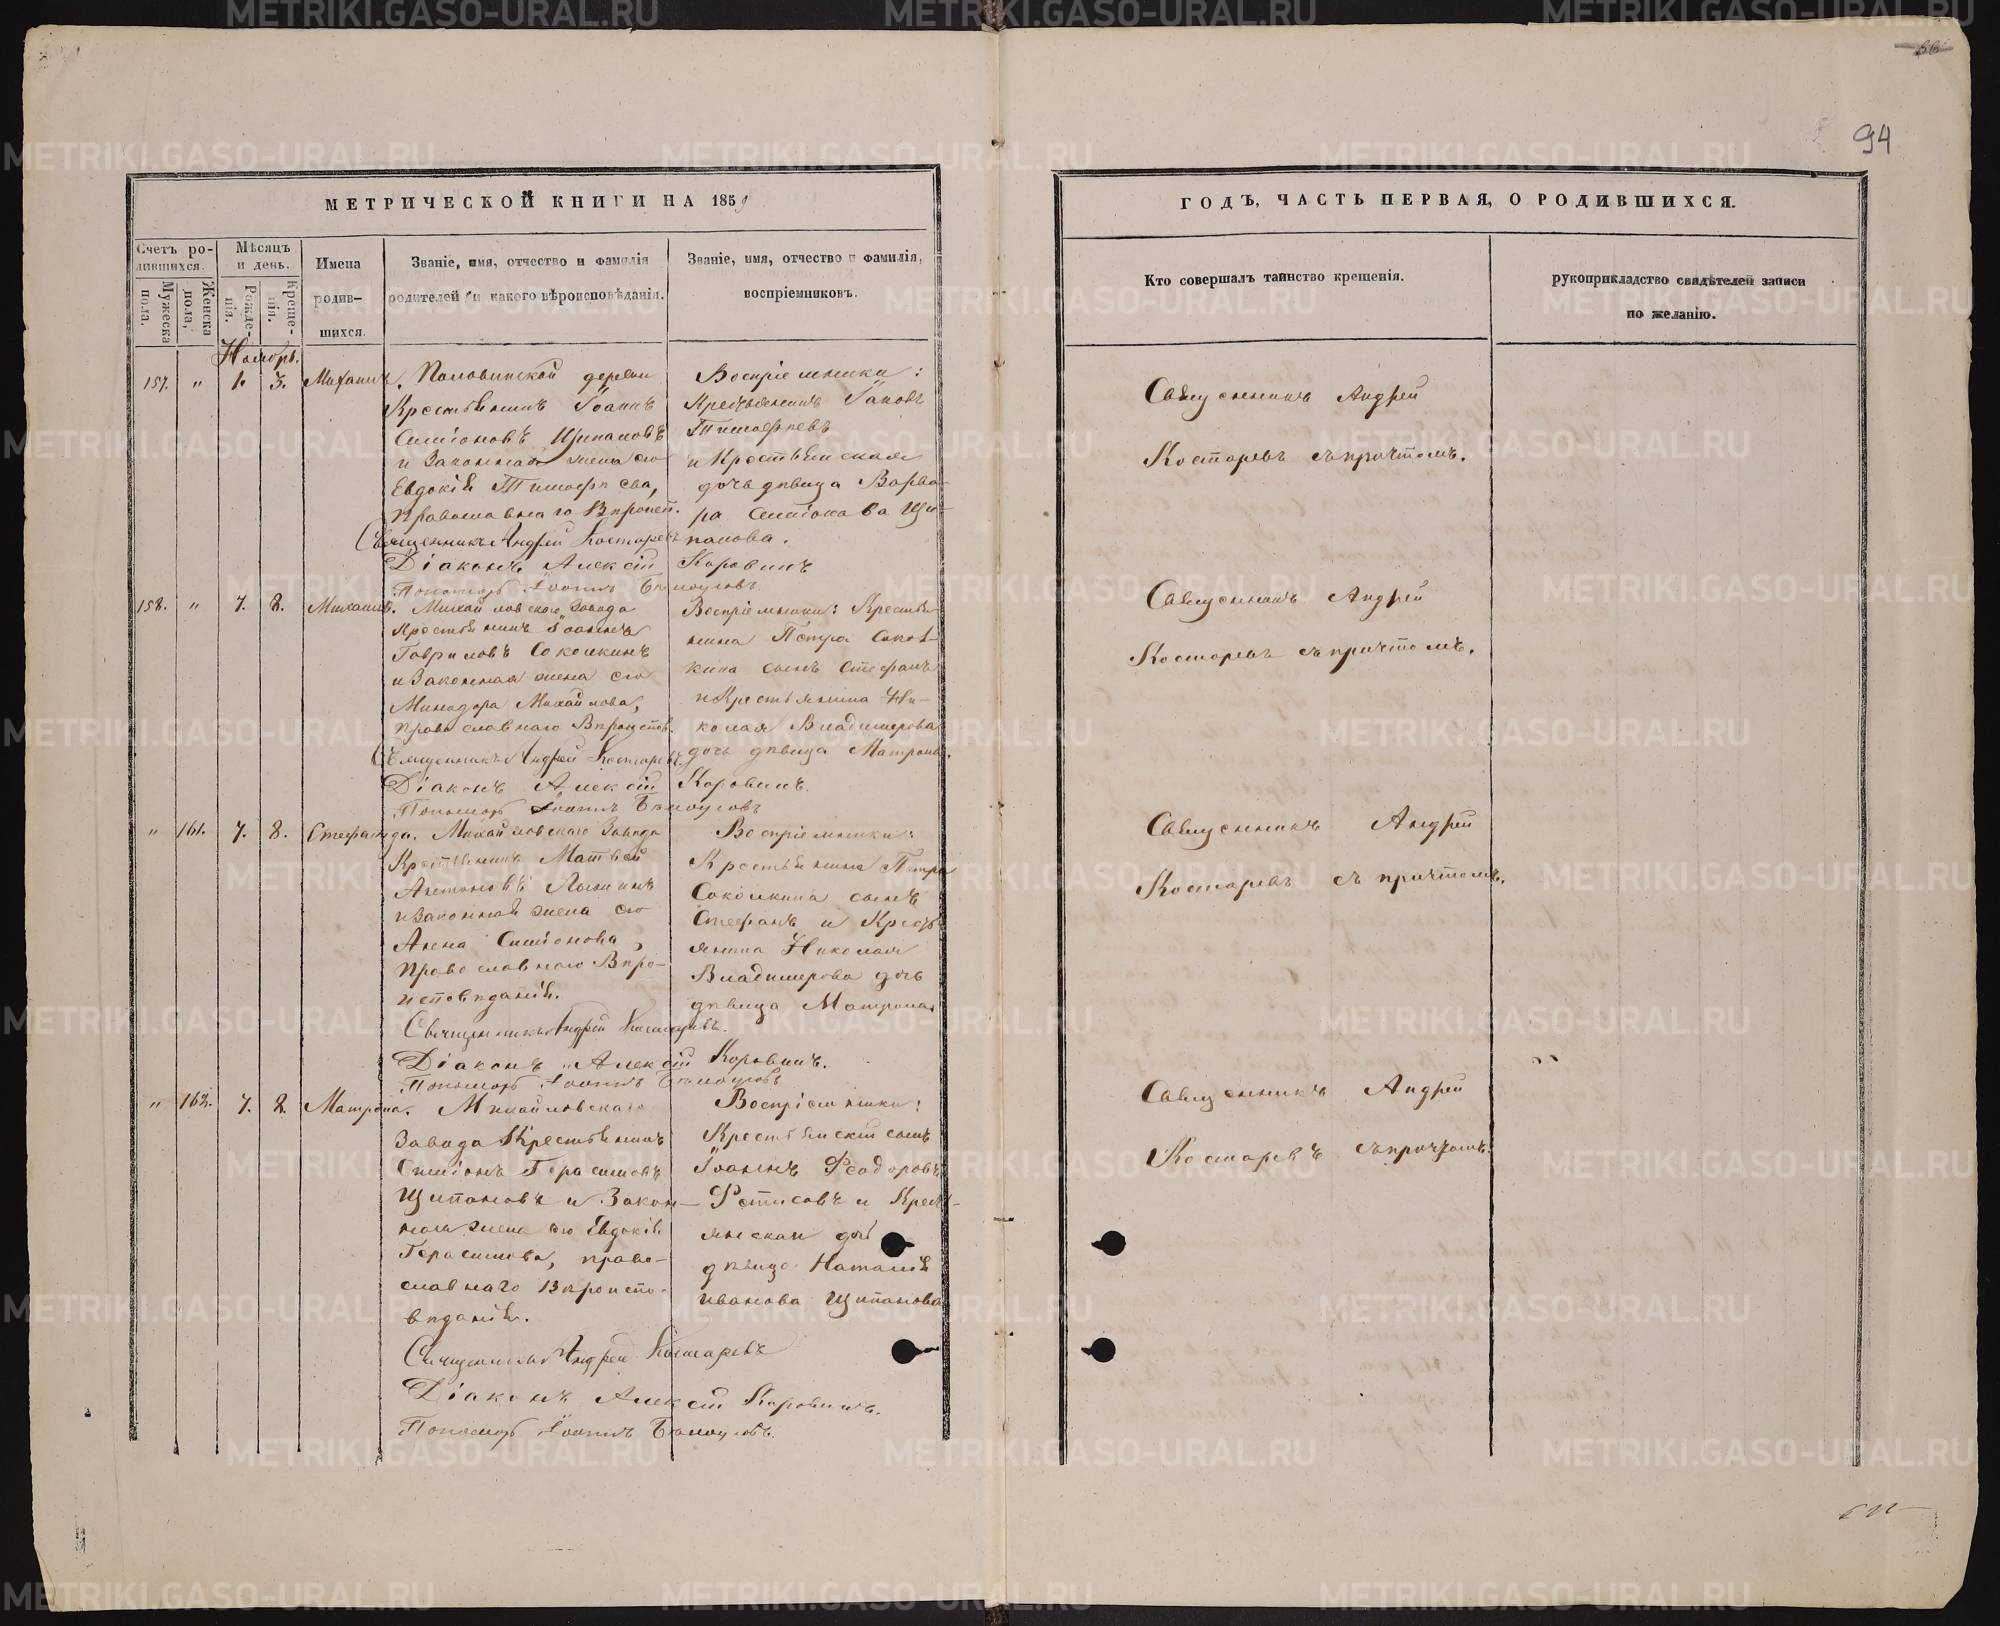 94
МЕТРИЧЕСКОЙ КНИГИ НА 1859
ГОДЪ, ЧАСТЬ ПЕРВАЯ, О РОДИВШИХСЯ.
Счетъ родившихся.
Мужеска пола.
Женска пола,
Мѣсяцъ и день.
Рожденія.
Крещенія.
Имена родившихся.
Званіе, имя, отчество и фамилія
родителей и какого вѣроисповѣданія.
Званіе, имя, отчество и фамилія,
воспріемниковъ.
Кто совершалъ таинство крещенія.
рукоприкладство свидѣтелей записи
по желанію.
Ноябрь.
157. " 1. 3. Михаилъ.
Половинской деревни
Крестьянинъ Іоаннъ
Симіоновъ Щипановъ
и Законная жена его
Евдокія Тимофѣева,
Православнаго Вѣроисп.
Воспріемники:
Крестьянинъ Іаковъ
Тимофѣевъ
и Крестьянская
дочь дѣвица Варва-
ра Симіонова Щи-
панова.
Священникъ Андрей Костаревъ
Діаконъ Алексій Коровинъ
Пономарь Іоаннъ Бѣлоусовъ
Священникъ Андрей
Костаревъ съ причтомъ.
158. " 7. 8. Михаилъ.
Михайловскаго Завода
Крестьянинъ Іоаннъ
Гавриловъ Соколкинъ
и Законная жена его
Минодора Михайлова,
православнаго Вѣроиспов.
Воспріемники: Крестья-
нина Петра Сокол-
кина сынъ Стефанъ
и Крестьянина Ни-
колая Владимерова
дочь дѣвица Матрона.
Священникъ Андрей Костаревъ
Діаконъ Алексій Коровинъ.
Пономарь Іоаннъ Бѣлоусовъ
Священникъ Андрей
Костаревъ съ причтомъ.
" 161. 7. 8. Стефанида.
Михайловскаго Завода
Крестьянинъ Матвей
Антоновъ
и законная жена его
Анна Симіонова,
Православнаго Вѣро-
исповѣданія.
Воспріемники:
Крестьянина Петра
Соколкина сынъ
Стефанъ и Кресть-
янина Николая
Владимерова дочь
дѣвица Матрона
Священникъ Андрей Костаревъ.
Діаконъ Алексій Коровинъ.
Пономарь Іоаннъ Бѣлоусовъ
Священникъ Андрей
Костаревъ съ причтомъ.
" 162. 7. 8. Матрона.
Михайловскаго
Завода Крестьянинъ
Симіонъ Герасимовъ
Щипановъ и Закон-
ная жена его Евдокія
Герасимова, право-
славнаго Вѣроиспо-
вѣданія.
Воспріемники:
Крестьянскій сынъ
Іоаннъ Феодоровъ
Фетисовъ и Кресть-
янская дочь
дѣвица Наталія
Иванова Щипанова
Священникъ Андрей Костаревъ
Діаконъ Алексій Коровинъ.
Пономарь Іоаннъ Бѣлоусовъ.
Священникъ Андрей
Костаревъ съ причтомъ.
METRIKI.GASO-URAL.RU